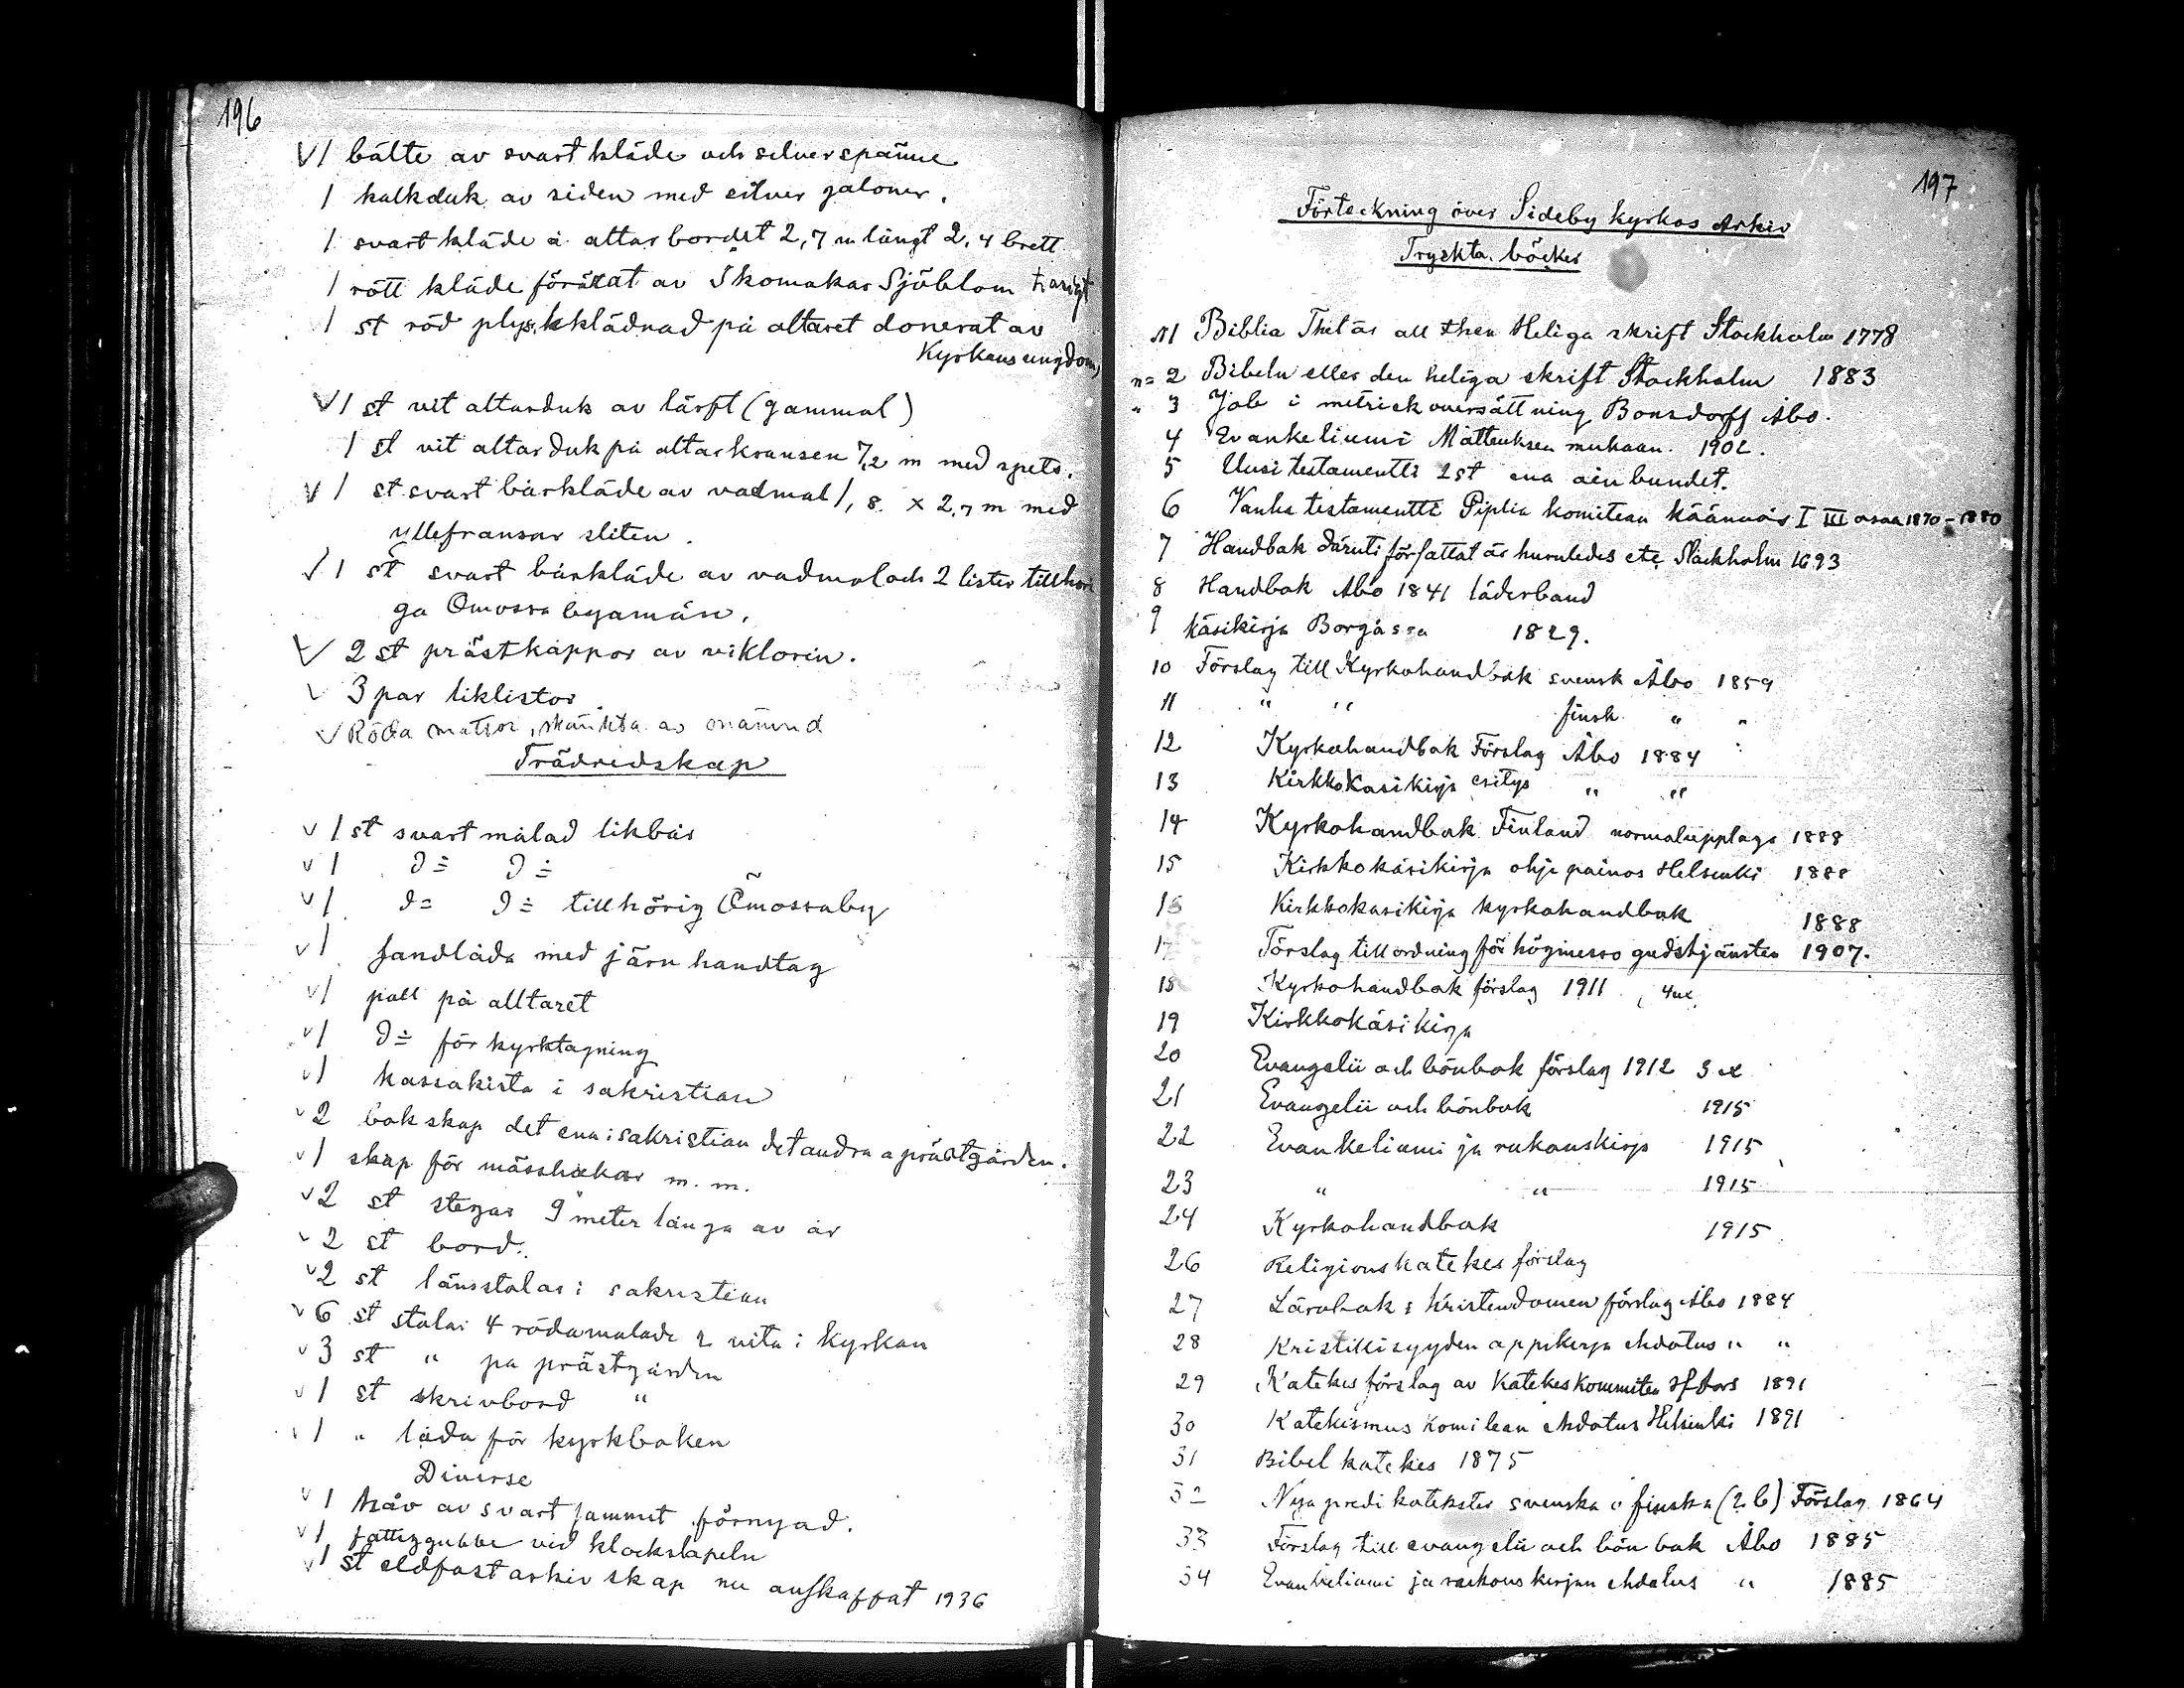 196
√ 1 bälte av svart kläde och silverspänne
1 kalkduk av siden med silver galoner.
1 svart kläde å altarbordet 2,7 m långt 2,4 brett
1 rött kläde förärat av Skomakar Sjöblom
1 st röd plys. kklädnad på altaret donerat av
Kyrkans ungdom,
√ 1 st vit altarduk av lärft (gammal)
1 st vit altarduk på altarkransen 7,2 m med spets.
√ 1 st svart bårkläde av vadmal 1,8 × 2,7 m med
yllefransar sliten.
√ 1 st svart bårkläde av vadmal och 2 lister tillhöri
ga Ömossa byamän.
√ 2 st prästkappor av viktorin.
√ 3 par liklistor
√ Röda mattor, skänkta av onämnd
Trädredskap
√ 1 st svart målad likbår
√ 1 d:o d:o
√ 1 d:o d:o tillhörig Ömossaby
√ 1 sandlåda med järn handtag
√ 1 pall på alltaret
√ 1 d:o för kyrktagning
√ 1 kassakista i sakristian
√ 2 bokskap det ena i sakristian det andra a prästgården.
√ 1 skap för mässhakar m. m.
√ 2 st stegar 9 meter långa av år
√ 2 st bord.
√ 2 st länsstolar i sakristian
√ 6 st stolar 4 rödamalade 2 vita i kyrkan
√ 3 st " pa prästgården
√ 1 st skrivbord "
√ 1 " låda för kyrkboken
Diverse
√ 1 håv av svart sammet förnyad.
√ 1 fattiggubbe vid klockstapeln
√ 1 st eldfast arkiv skap nu anskaffat 1936
197
Förteckning över Sideby kyrkos Arkiv
Tryckta böcker
n1 Biblia Thet är all then Heliga skrift Stockholm 1778
n= 2 Bibeln eller den heliga skrift Stockholm 1883
" 3 Job i metrisk översättning Bonsdorff Åbo.
4 Evankeliumi Matteuksen mukaan. 1902.
5 Uusi testamentti 2 st ena oinbundet.
6 Vanha testamentti Piplia komitean käännös I III osaa 1870-1880
7 Handbok däruti författat är huruledes etc Stockholm 1693
8 Handbok Åbo 1841 läderband
9 käsikirja Borgåssa 1829.
10 Förslag till Kyrkohandbok svensk Åbo 1859
11 " " finsk " "
12 Kyrkohandbok Förslag Åbo 1884
13 Kirkkokasikirja esitys " "
14 Kyrkohandbok Finland normalupplaga 1888
15 Kirkkokäsikirja ohje painos Helsinki 1888
16 Kirkkokasikirja kyrkohandbok 1888
17 Förslag till ordning för högmesso gudstjänsten 1907.
18 Kyrkohandbok förslag 1911 4 ex.
19 Kirkkokäsikirja
20 Evangelii och bönbok förslag 1912 3 ex
21 Evangelii och bönbok 1915
22 Evankeliumi ja rukouskirja 1915
23 " " 1915
24 Kyrkohandbok 1915
26 Religionskatekes förslag
27 Lärobok i Kristendomen förslag Åbo 1884
28 Kristillisyyden appikirja ehdotus " "
29 Katekes förslag av Katekeskommiten Hfors 1891
30 Katekismus Komitean ehdotus Helsinki 1891
31 Bibel katekes 1875
32 Nya predikotekster svenska o finska (2 b) Förslag 1864
33 Förslag till evangelii och bön bok Åbo 1885
34 Evankeliumi ja rukous kirjan ehdotus " 1885